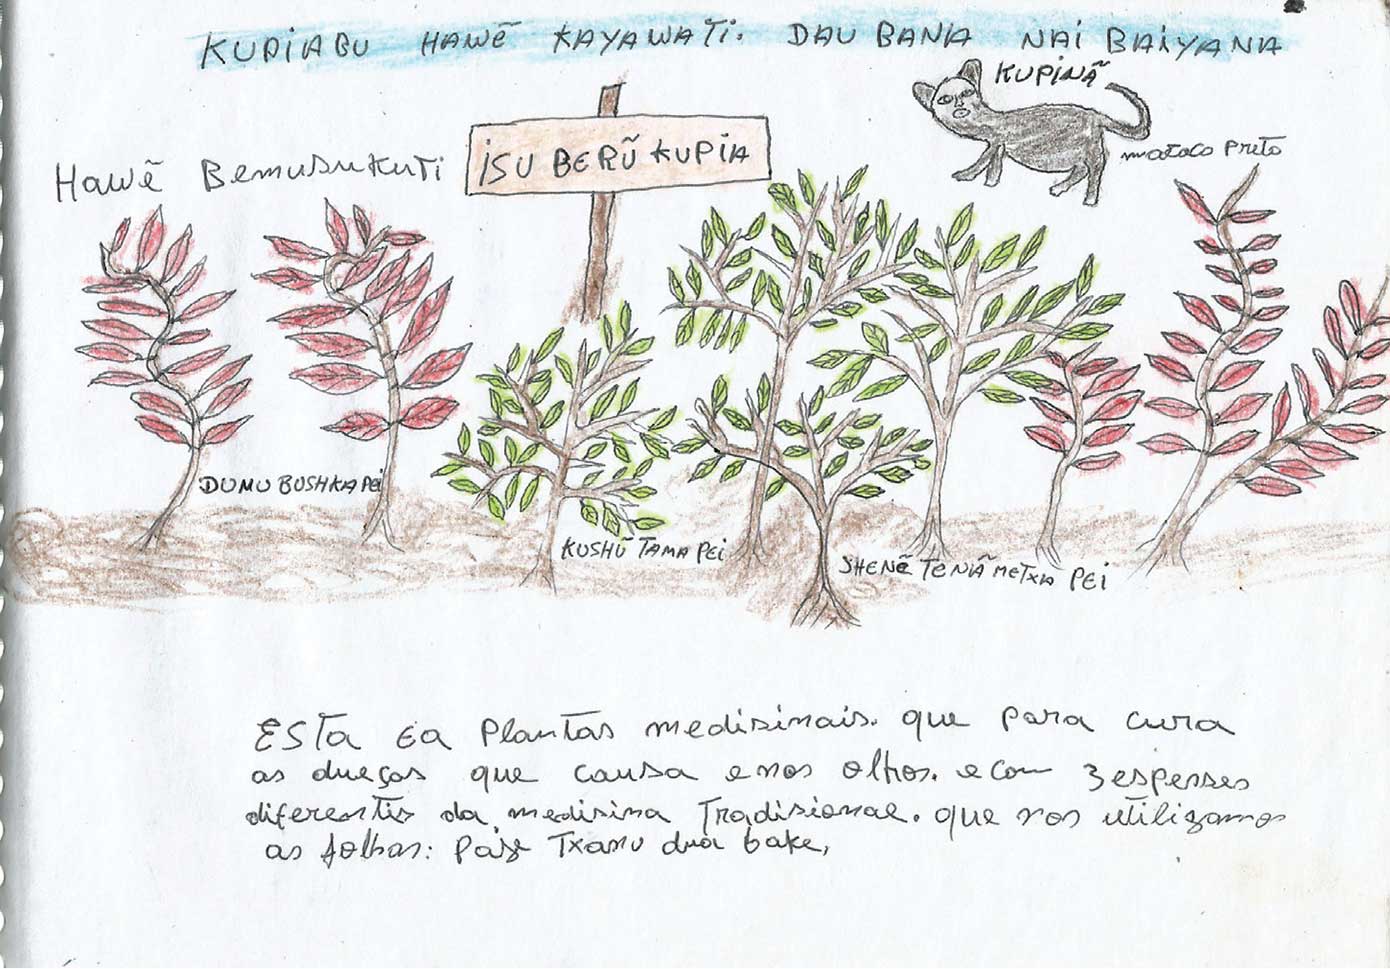 KUPIABU HAWẼ KAYAWATI. DAU BANA NAI BAIYANA
KUPINÃ
macaco Preto
ISU BERŨ KUPIA
Hawẽ Bemusukuti
DUMU BUSHKA PEI
KUSHŨ TAMA PEI
SHENẼ TENIÃ METXA PEI
ESTa Ea Plantas medisinais. que para cura
as dueças que causa enos olhos. e com 3 espesses
diferentis da medisina Tradisional. que nos utilizamos
as folhas: Txanu dua bake,